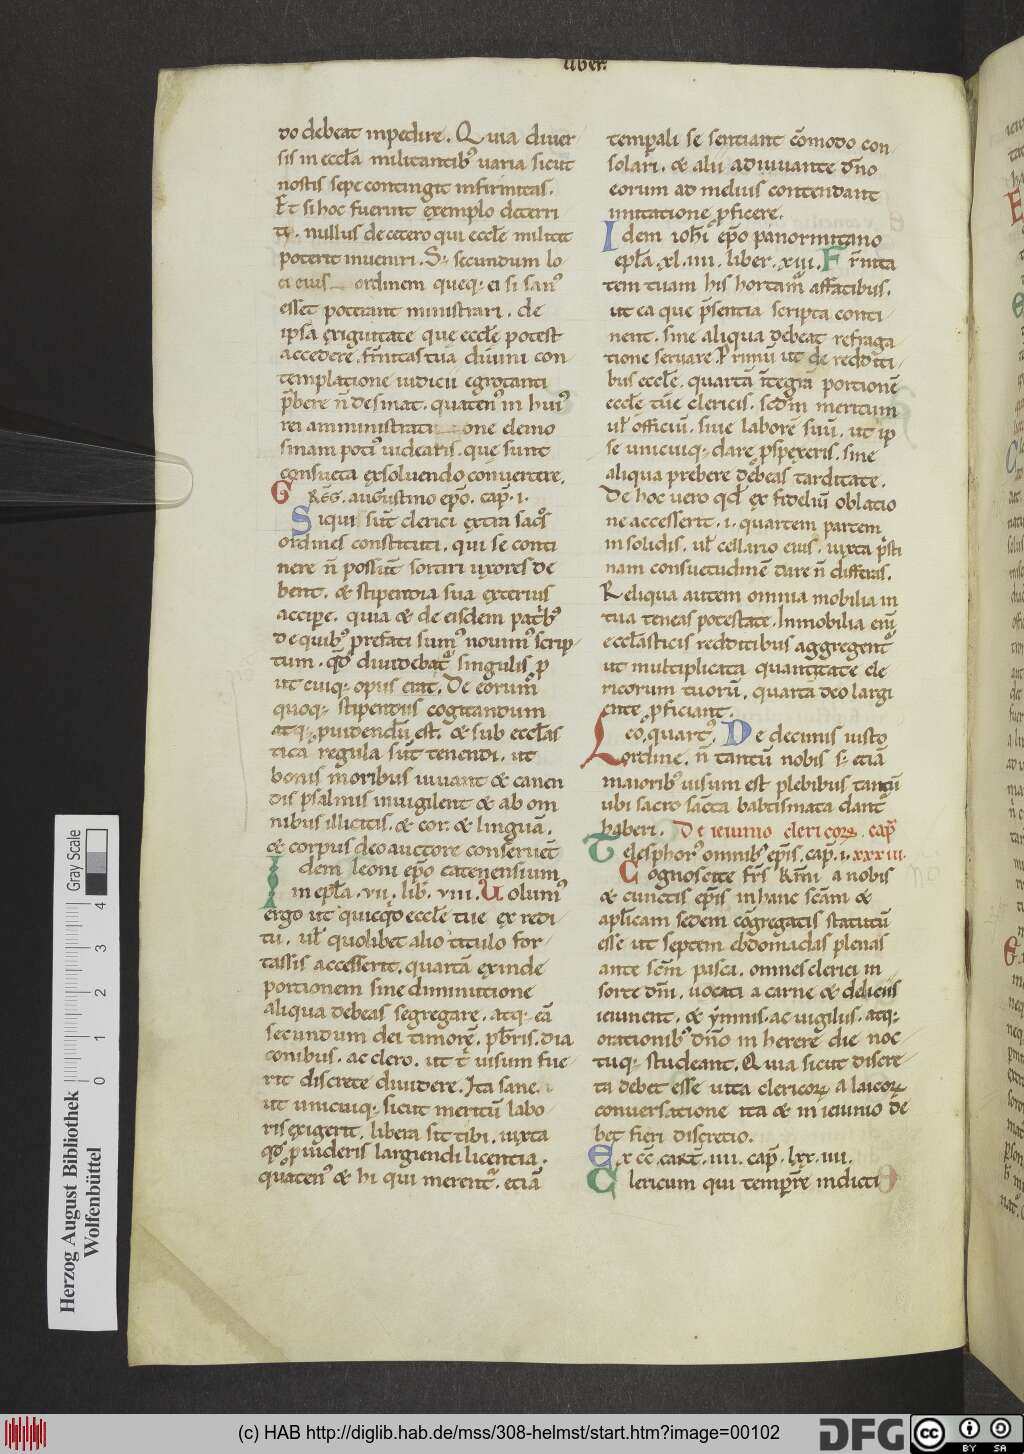 liber.
do debeat inpedire. Quia diuer
sis in eccl̄a militantib; uaria sicut
nostis sepe contingit infirmitas.
Et si hoc fuerint exemplo deterri
ti, nullus de cetero qui eccl̄e militet
poterit inueniri. S; secundum lo
ci eius ordinem queq; ei si san9
esset potuant ministrari. de
ipsa exiguitate que eccl̄e potest
accedere, fr̄nitas tua diuini con
templatione iudicii egrotanti
p̄bere n̄ desinat. quaten9 in hui9
rei amministrati one elemo
sinam poti9 uidearis, que sunt
consueta exsoluendo conuertere.
GREG. augustino ep̄o. cap̄. i.
Siqui sūt clerici extra sac̄s
ordines constituti, qui se conti
nere n̄ possūt sortiri uxores de
bent. & stipendia sua exterius
accipe. quia & de eisdem patrib9
de quib9 prefati sum9 nouim9 scrip
tum. qđ diuidebat singulis p
ut cuiq; opus erat. De eorum
quoq; stipendiis cogitandum
atq; puidendū est. & sub eccl̄as
tica regula sūt tenendi. ut
bonis moribus uiuant & canen
dis psalmis inuigilent & ab om
nibus illicitis. & cor. & linguā.
& corpus deo auctore conseruēt
Idem leoni ep̄o catenensium
in epl̄a .vii. lib̄. viii. Uolum9
ergo ut quicqđ eccl̄e tue ex redi
tu. ul̄ quolibet alio titulo for
tassis accesserit, quartā exinde
portionem sine diminutione
aliqua debeas segregare. atq; eā
secundum dei timorē, pb̄ris, dia
conibus, ac clero. ut t̄ uisum fue
rit discrete diuidere. Ita sane.
ut unicuiq; sicut meritū labo
ris exigerit, libera sit tibi. iuxta
qđ puideris largiendi licentia.
quaten9 & hi qui merent̄. etiā
temp̄ali se sentiant cōmodo con
solari. & alii adiuuante dn̄o
eorum ad melius contendant
imitatione pficere.
Idem ioh̄i ep̄o panormitano
epl̄a xl.iiii. liber. xiii. Fr̄nita
tem tuam his hortam̄ affatibus.
ut ea que p̄sentia scripta conti
nent. sine aliqua debeat refraga
tione seruare. Primū ut de redditi
bus eccl̄e. quartā ītegrā portionē
eccl̄e tūe clericis, sedm̄ meritum
ul̄ officiū, siue laborē suū, ut ip
se unicuiq; dare pspexeris. sine
aliqua prebere debeas tarditate.
De hoc uero qđ ex fideliū oblatio
ne accesserit .i. quartem partem
in solidis, ul̄ cellario eius, iuxta p̄sti
nam consuetudinē dare n̄ differas.
Reliqua autem omnia mobilia in
tua teneas potestate. Inmobilia eni
ecclasticis redditibus aggregent̄
ut multiplicata quantitate cle
ricorum tuorū, quarta deo largi
ente pficiant.
Leo quart9. De decimis iusto
ordine. n̄ tantū nobis s; etiā
maiorib9 uisum est plebibus tantū
ubi sacro sāta babtismata dant̄
haberi. De ieiunio clericorꝝ. cap̄
Telesphor9 omnib9 ep̄is. cap̄. i. xxxiii.
Cognoscite fr̄s km̄i a nobis
& cunctis ep̄is in hanc scām &
apl̄icam sedem cōgregatis statutū
esse ut septem ebdomadas plenas
ante scm̄ pasca. omnes clerici in
sorte dn̄i. uocati a carne & deliciis
ieiunent. & ymnis, ac uigiliis. atq;
orationib9 dn̄o in herere die noc
tuq; studeant. Quia sicut discre
ta debet esse uita clericorꝝ a laicorꝝ
conuersatione ita & in ieiunio de
bet fieri discretio.
Ex cc̄ cart. iiii. cap̄. lxx.iiii.
Clericum qui tempr̄e indicti
Gray Scale
0 1 2 3 4
Herzog August Bibliothek
Wolfenbüttel
(c) HAB http://diglib.hab.de/mss/308-helmst/start.htm?image=00102
DFG
cc BY SA